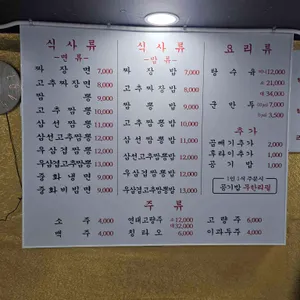 식사류
-면류-
짜장면 7,000
고추짜장면 8,000
짬뽕 9,000
고추짬뽕 10,000
삼선짬뽕 11,000
삼선고추짬뽕 12,000
우삼겹짬뽕 12,000
우삼겹고추짬뽕 13,000
중화냉면 9,000
중화비빔면 9,000
식사류
-밥류-
짜장밥 7,000
고추짜장밥 8,000
짬뽕밥 9,000
고추짬뽕밥 10,000
삼선짬뽕밥 11,000
삼선고추짬뽕밥 12,000
우삼겹짬뽕밥 12,000
우삼겹고추짬뽕밥 13,000
요리류
탕수육 12,000
21,000
34,000
군만두 7,000
3,500
추가
곱빼기추가 2,000
우라이추가 1,000
공기밥 1,000
1인 1식 주문시
공기밥 무한리필
주류
소주 4,000
맥주 4,000
연태고량주 소12,000
32,000
칭타오 6,000
고량주 6,000
이과두주 4,000